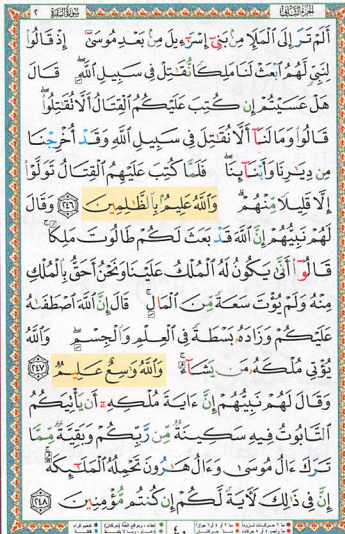 الجزء الثاني سورة البقرة ٢
أَلَمْ تَرَ إِلَى الْمَلَإِ مِنۢ بَنِىٓ إِسْرَٰٓءِيلَ مِنۢ بَعْدِ مُوسَىٰٓ إِذْ قَالُوا۟
لِنَبِىٍّ لَّهُمُ ٱبْعَثْ لَنَا مَلِكًا نُّقَٰتِلْ فِى سَبِيلِ ٱللَّهِ ۖ قَالَ
هَلْ عَسَيْتُمْ إِن كُتِبَ عَلَيْكُمُ ٱلْقِتَالُ أَلَّا تُقَٰتِلُوا۟ ۖ
قَالُوا۟ وَمَا لَنَآ أَلَّا نُقَٰتِلَ فِى سَبِيلِ ٱللَّهِ وَقَدْ أُخْرِجْنَا
مِن دِيَٰرِنَا وَأَبْنَآئِنَا ۖ فَلَمَّا كُتِبَ عَلَيْهِمُ ٱلْقِتَالُ تَوَلَّوْا۟
إِلَّا قَلِيلًا مِّنْهُمْ ۗ وَٱللَّهُ عَلِيمٌۢ بِٱلظَّٰلِمِينَ ﴿٢٤٦﴾ وَقَالَ
لَهُمْ نَبِيُّهُمْ إِنَّ ٱللَّهَ قَدْ بَعَثَ لَكُمْ طَالُوتَ مَلِكًا ۚ
قَالُوٓا۟ أَنَّىٰ يَكُونُ لَهُ ٱلْمُلْكُ عَلَيْنَا وَنَحْنُ أَحَقُّ بِٱلْمُلْكِ
مِنْهُ وَلَمْ يُؤْتَ سَعَةً مِّنَ ٱلْمَالِ ۚ قَالَ إِنَّ ٱللَّهَ ٱصْطَفَىٰهُ
عَلَيْكُمْ وَزَادَهُۥ بَسْطَةً فِى ٱلْعِلْمِ وَٱلْجِسْمِ ۖ وَٱللَّهُ
يُؤْتِى مُلْكَهُۥ مَن يَشَآءُ ۚ وَٱللَّهُ وَٰسِعٌ عَلِيمٌ ﴿٢٤٧﴾
وَقَالَ لَهُمْ نَبِيُّهُمْ إِنَّ ءَايَةَ مُلْكِهِۦٓ أَن يَأْتِيَكُمُ
ٱلتَّابُوتُ فِيهِ سَكِينَةٌ مِّن رَّبِّكُمْ وَبَقِيَّةٌ مِّمَّا
تَرَكَ ءَالُ مُوسَىٰ وَءَالُ هَٰرُونَ تَحْمِلُهُ ٱلْمَلَٰٓئِكَةُ ۚ
إِنَّ فِى ذَٰلِكَ لَءَايَةً لَّكُمْ إِن كُنتُم مُّؤْمِنِينَ ﴿٢٤٨﴾
٤٠